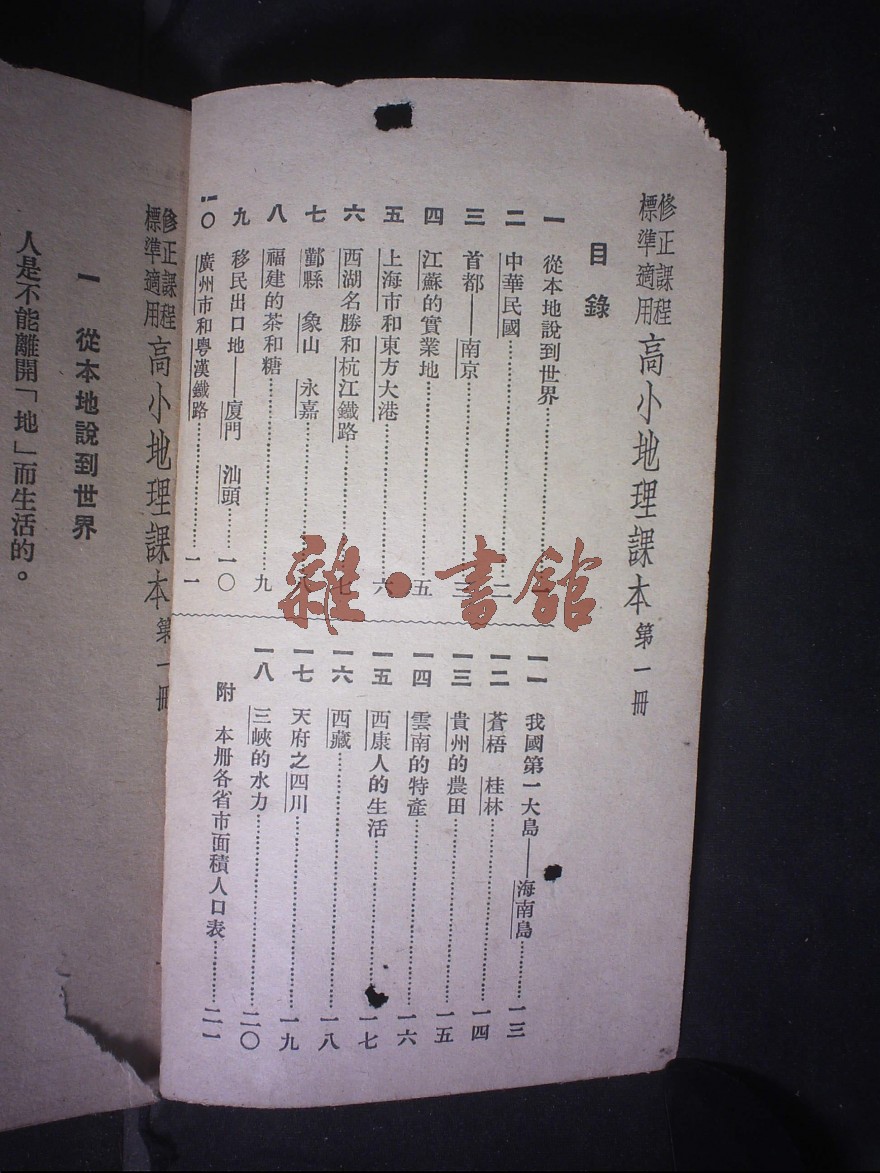 修正課程標準適用 高小地理課本 第一冊
目錄
一 從本地說到世界………一
二 中華民國………二
三 首都——南京………三
四 江蘇的實業地………五
五 上海市和東方大港………六
六 西湖名勝和杭江鐵路………七
七 鄞縣 象山 永嘉………八
八 福建的茶和糖………九
九 移民出口地——廈門 汕頭………一〇
一〇 廣州市和粵漢鐵路………一一
一一 我國第一大島——海南島………一三
一二 蒼梧 桂林………一四
一三 貴州的農田………一五
一四 雲南的特產………一六
一五 西康人的生活………一七
一六 西藏………一八
一七 天府之四川………一九
一八 三峽的水力………二〇
附 本册各省市面積人口表………二一
雜·書館
修正課程標準適用 高小地理課本 第一冊
一 從本地說到世界
人是不能離開「地」而生活的。